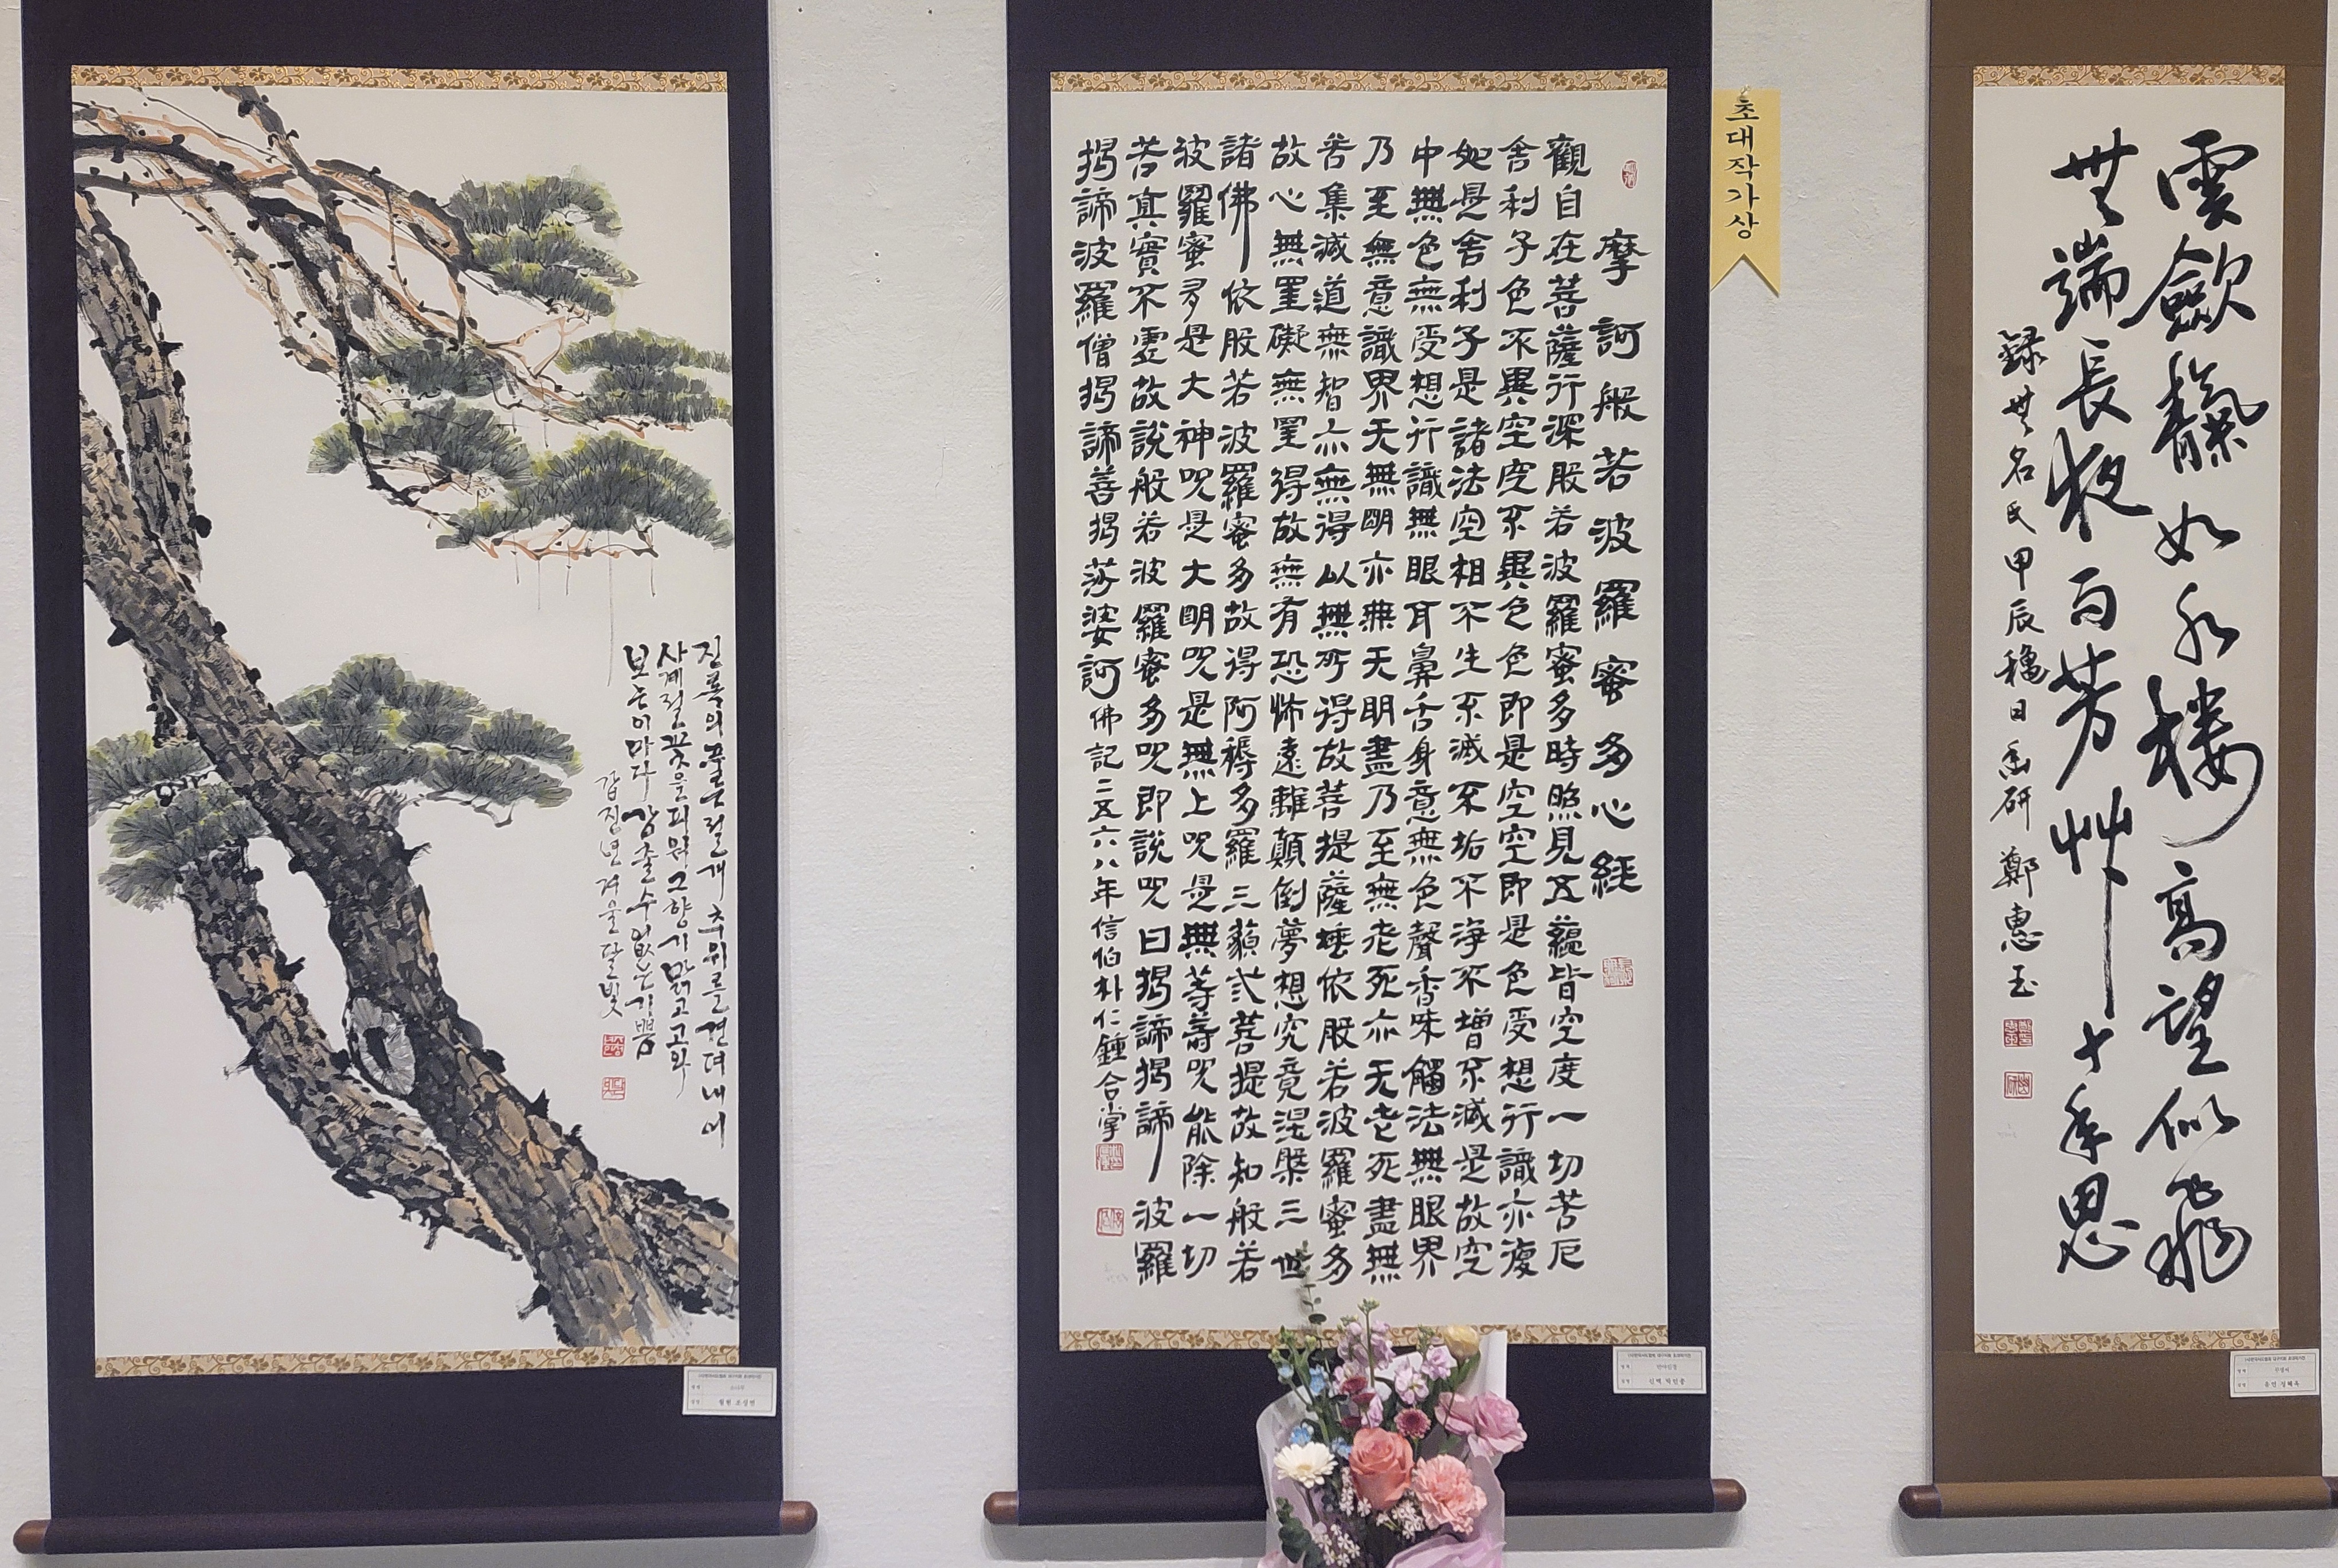 진록의 푸른 절개 추위를 견뎌내어
사계절 꽃을 피워 그 향기 맑고 고와
보는이마다 감출 수 없는 기쁨
갑진년 겨울 달빛
초대작가상
摩訶般若波羅蜜多心經
觀自在菩薩行深般若波羅蜜多時照見五蘊皆空度一切苦厄
舍利子色不異空空不異色色即是空空即是色受想行識亦復
如是舍利子是諸法空相不生不滅不垢不淨不增不減是故空
中無色無受想行識無眼耳鼻舌身意無色聲香味觸法無眼界
乃至無意識界无無明亦無无明盡乃至無老死亦无老死盡無
苦集滅道無智亦無得以無所得故菩提薩埵依般若波羅蜜多
故心無罣礙無罣得故無有恐怖遠離顛倒夢想究竟涅槃三世
諸佛依般若波羅蜜多故得阿耨多羅三藐弍菩提故知般若
波羅蜜多是大神呪是大明呪是無上呪是無等等呪能除一切
苦真實不虛故說般若波羅蜜多呪即說呪曰揭諦揭諦波羅
揭諦波羅僧揭諦菩揭莎婆訶 佛記二五六八年信伯朴仁鍾合掌
雲歛靝如水樓高望似飛
無端長夜雨芳艸十年思
録無名氏甲辰龝日幽研 鄭惠玉
반야심경
신백 박인종